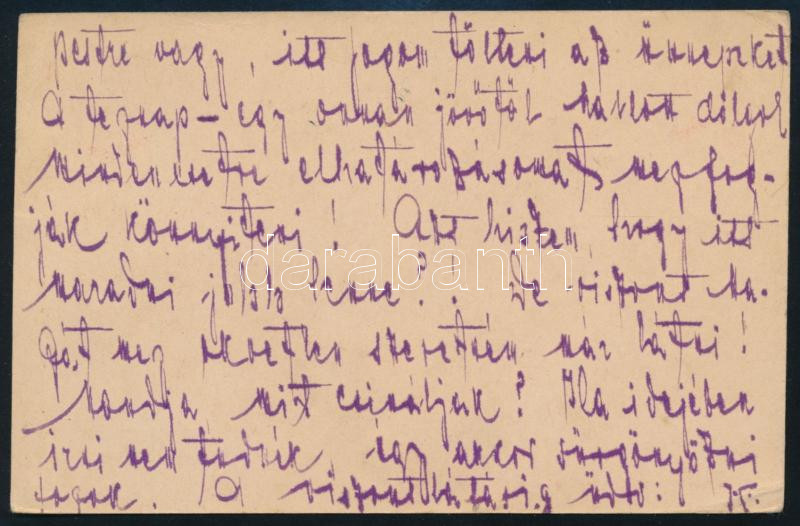 pestre vagy, itt fogom tölteni az ünnepeket
A tegnap – egy onnan jövőtől hallott dolgok
mindenesetre elhatározásomat megfog-
ják könnyíteni! Azt hiszem, hogy itt
maradni jobb lenne?. De viszont ma-
gát meg okvetlen szeretném már látni!
Mondja mit csináljak? Ha idejében
írni nem tudnék, úgy akkor sürgönyözni
fogok. A viszontlátásig üdv:
darabanth